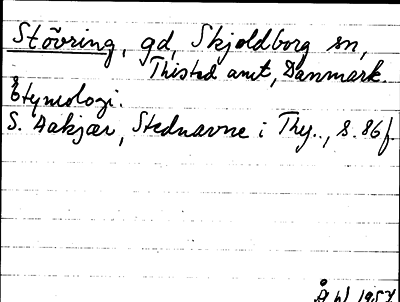 Stövring, gd, Skjoldborg sn,
Thisted amt, Danmark.
Etymologi.
S. Aakjær, Stednavne i Thy.., s. 86f.
1957